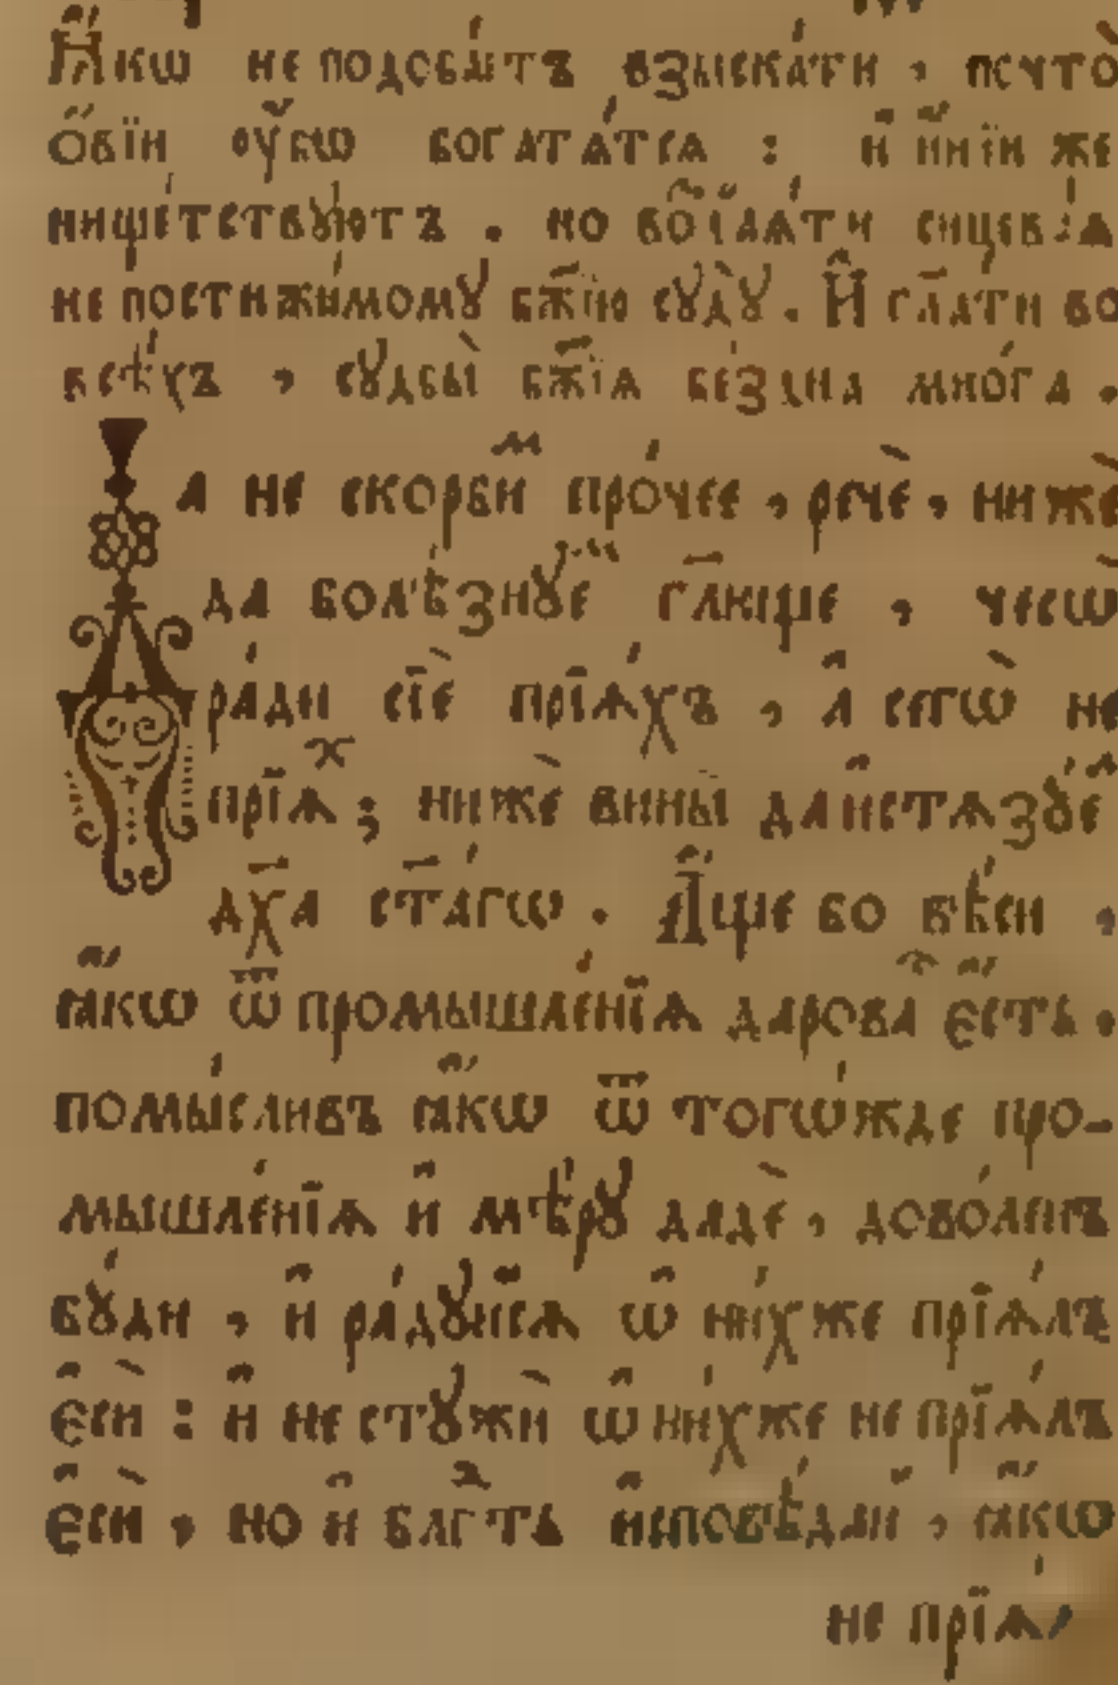 Ꙗ҆́кѡ не подоба́етъ взыска́ти , почто̀
о҆́вїи ᲂу҆́бѡ богата́тсѧ : и҆ и҆ні́и же
нище́тствꙋютъ . но воз̾їдѧ́ти сицева̑ѧ
не постижи́момꙋ бж҃їю сꙋдꙋ̀ . И҆ гл҃ати во
всѣ́хъ , сꙋдбы̀ бж҃їѧ бе́здна мно́га .
Да не скорби́м про́чее , речѐ , ниже
да болѣ́знꙋем гл҃юще , чесѡ̀
ра́ди сїѐ прїѧ́хъ , а҆ сегѡ̀ не
прїѧ́х ; нижѐ вины̀ да и҆стѧзꙋ́ем
дх҃а ст҃а́гѡ . А҆́ще бо вѣ́си ,
ꙗ҆́кѡ ѿ промышле́нїѧ дарова̑ є҆́сть .
помы́сливъ ꙗ҆́кѡ ѿ тогѡ́жде про-
мышле́нїѧ и҆ мѣ́рꙋ дадѐ , дово́ленъ
бꙋ́ди , и҆ ра́дꙋйсѧ ѡ҆ ни́хже прїѧ́лъ
є҆сѝ : и҆ не стꙋжѝ ѡ҆ ни́хже не прїѧ́лъ
є҆сѝ , но и҆ блг҃дть и҆сповѣ́дай , ꙗ҆́кѡ
не прїѧ́